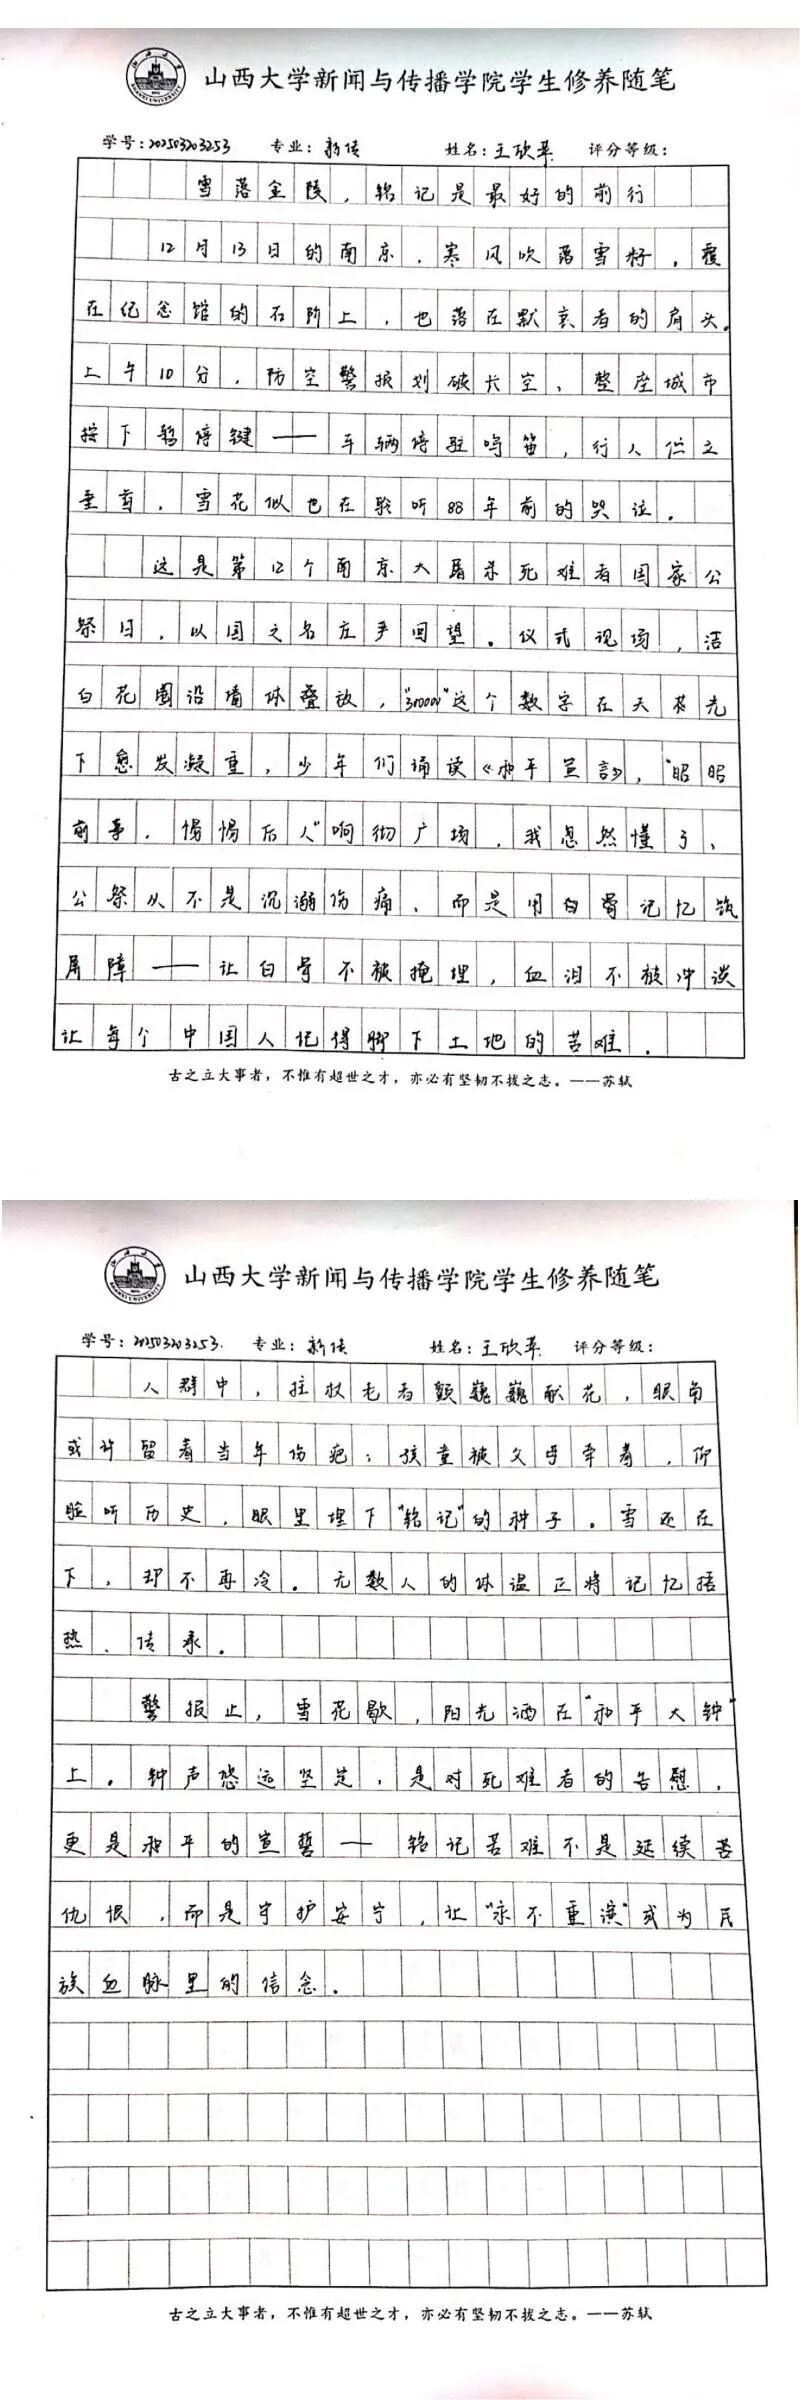 山西大学新闻与传播学院学生修养随笔
学号:202503203253 专业:新传 姓名:王欣苹 评分等级:
雪落金陵,铭记是最好的前行
12月13日的南京,寒风吹落雪籽,覆
在纪念馆的石阶上,也落在默哀者的肩头。
上午10分,防空警报划破长空、整座城市
按下暂停键——车辆停驻鸣笛,行人伫立
垂首,雪花似也在聆听88年前的哭泣。
这是第12个南京大屠杀死难者国家公
祭日,以国之名庄严回望。仪式现场,洁
白花圈沿墙体叠放,"300000"这个数字在天光
下愈发凝重,少年们诵读《和平宣言》,"昭昭
前事,惕惕后人"响彻广场,我忽然懂了、
公祭从不是沉溺伤痛、而是用白骨记忆筑
屏障——让白骨不被掩埋,血泪不被冲淡
让每个中国人记得脚下土地的苦难.
古之立大事者,不惟有超世之才,亦必有坚韧不拔之志。——苏轼
山西大学新闻与传播学院学生修养随笔
学号:202503203253. 专业:新传 姓名:王欣苹 评分等级:
人群中,拄杖老者颤巍巍献花,眼角
或许留着当年伤疤;孩童被父母牵着,仰
脸听历史,眼里埋下"铭记"的种子。雪还在
下,却不再冷。无数人的体温正将记忆捂
热、传承。
警报止,雪花歇,阳光洒在"和平大钟"
上。钟声悠远坚定,是对死难者的告慰,
更是和平的宣誓——铭记苦难不是延续苦
仇恨,而是守护安宁,让"永不重演"成为民
族血脉里的信念.
古之立大事者,不惟有超世之才,亦必有坚韧不拔之志。——苏轼